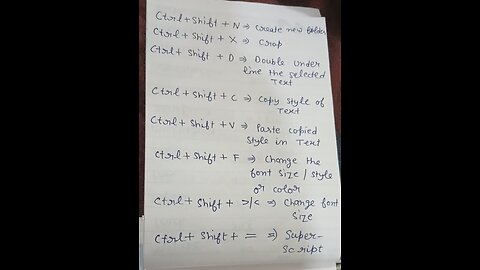 Ctrl+Shift + N ⇒ Create new folder
Ctrl+Shift + X ⇒ Crop
Ctrl+ Shift + D ⇒ Double under
line the selected
Text
Ctrl+Shift + C ⇒ Copy style of
Text
Ctrl+Shift + V ⇒ Paste copied
style in Text
Ctrl+Shift + F ⇒ Change the
font size / style
or color
Ctrl+ Shift+ >/< ⇒ Change font
size
Ctrl+ Shift+ = ⇒ Super-
Script